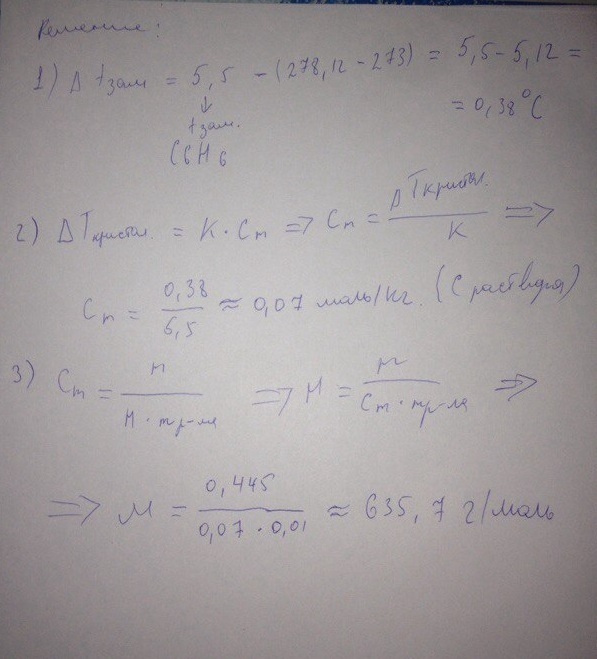 Решение:
1) Δ tзам = 5,5 - (278,12 - 273) = 5,5 - 5,12 =
↓ = 0,38°C
tзам.
C6H6
2) ΔTкристал. = K · Cm => Cm = ΔTкристал. / K =>
Cm = 0,38 / 6,5 ≈ 0,07 моль/кг. (C раствора)
3) Cm = m / (M · mр-ля) => M = m / (Cm · mр-ля) =>
=> M = 0,445 / (0,07 · 0,01) ≈ 635,7 г/моль